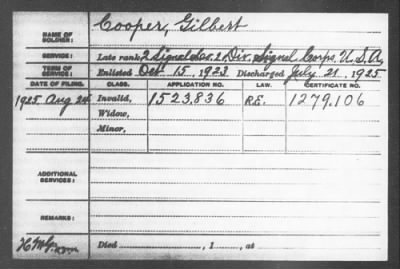 NAME OF SOLDIER: Cooper, Gilbert
SERVICE: Late rank, 2 Signal Co. 2 Div. Signal Corps, U.S.A.
TERM OF SERVICE: Enlisted Oct 15, 1923 Discharged July 21, 1925
DATE OF FILING. CLASS. APPLICATION NO. LAW. CERTIFICATE NO.
1925 Aug 24 Invalid, 1523,836 R.E. 1279,106
Widow,
Minor,
ADDITIONAL SERVICES:
REMARKS:
Died , 1 , at